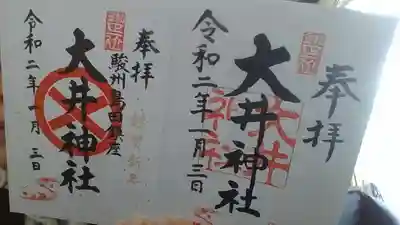 奉拝
大井神社
令和二年一月三日
奉拝
駿州島田鎮座
大井神社
令和二年一月三日